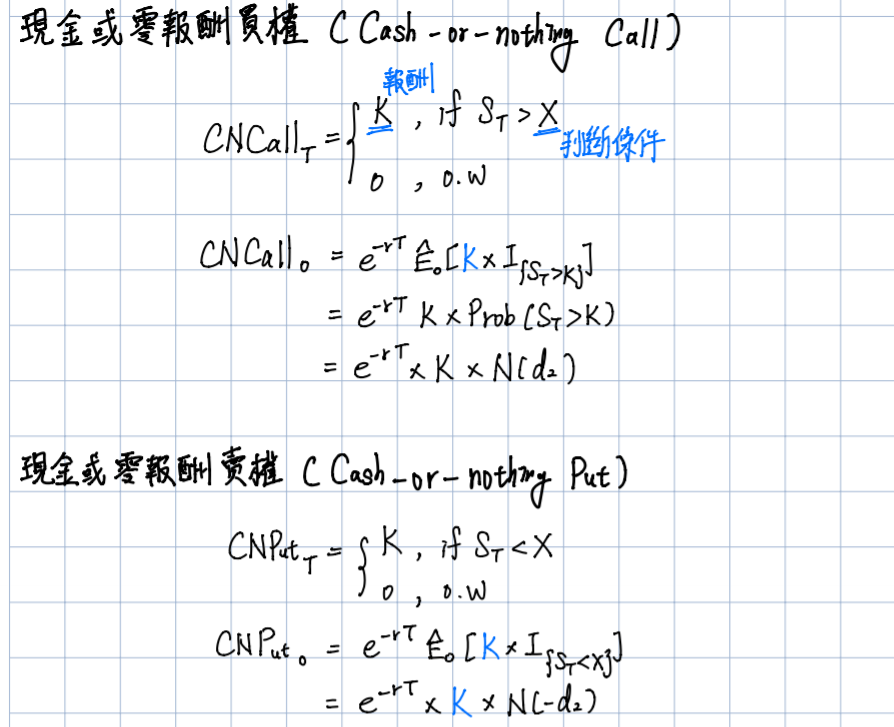 現金或零報酬買權 (Cash-or-nothing Call)
報酬
CNCall_T = { K , if S_T > X
判斷條件
0 , o.w
CNCall_0 = e^{-rT} Ê_0[K × I_{{S_T>K}}]
= e^{-rT} K × Prob(S_T>K)
= e^{-rT} × K × N(d_2)
現金或零報酬賣權 (Cash-or-nothing Put)
CNPut_T = { K , if S_T < X
0 , o.w
CNPut_0 = e^{-rT} Ê_0[K × I_{{S_T<X}}]
= e^{-rT} × K × N(-d_2)